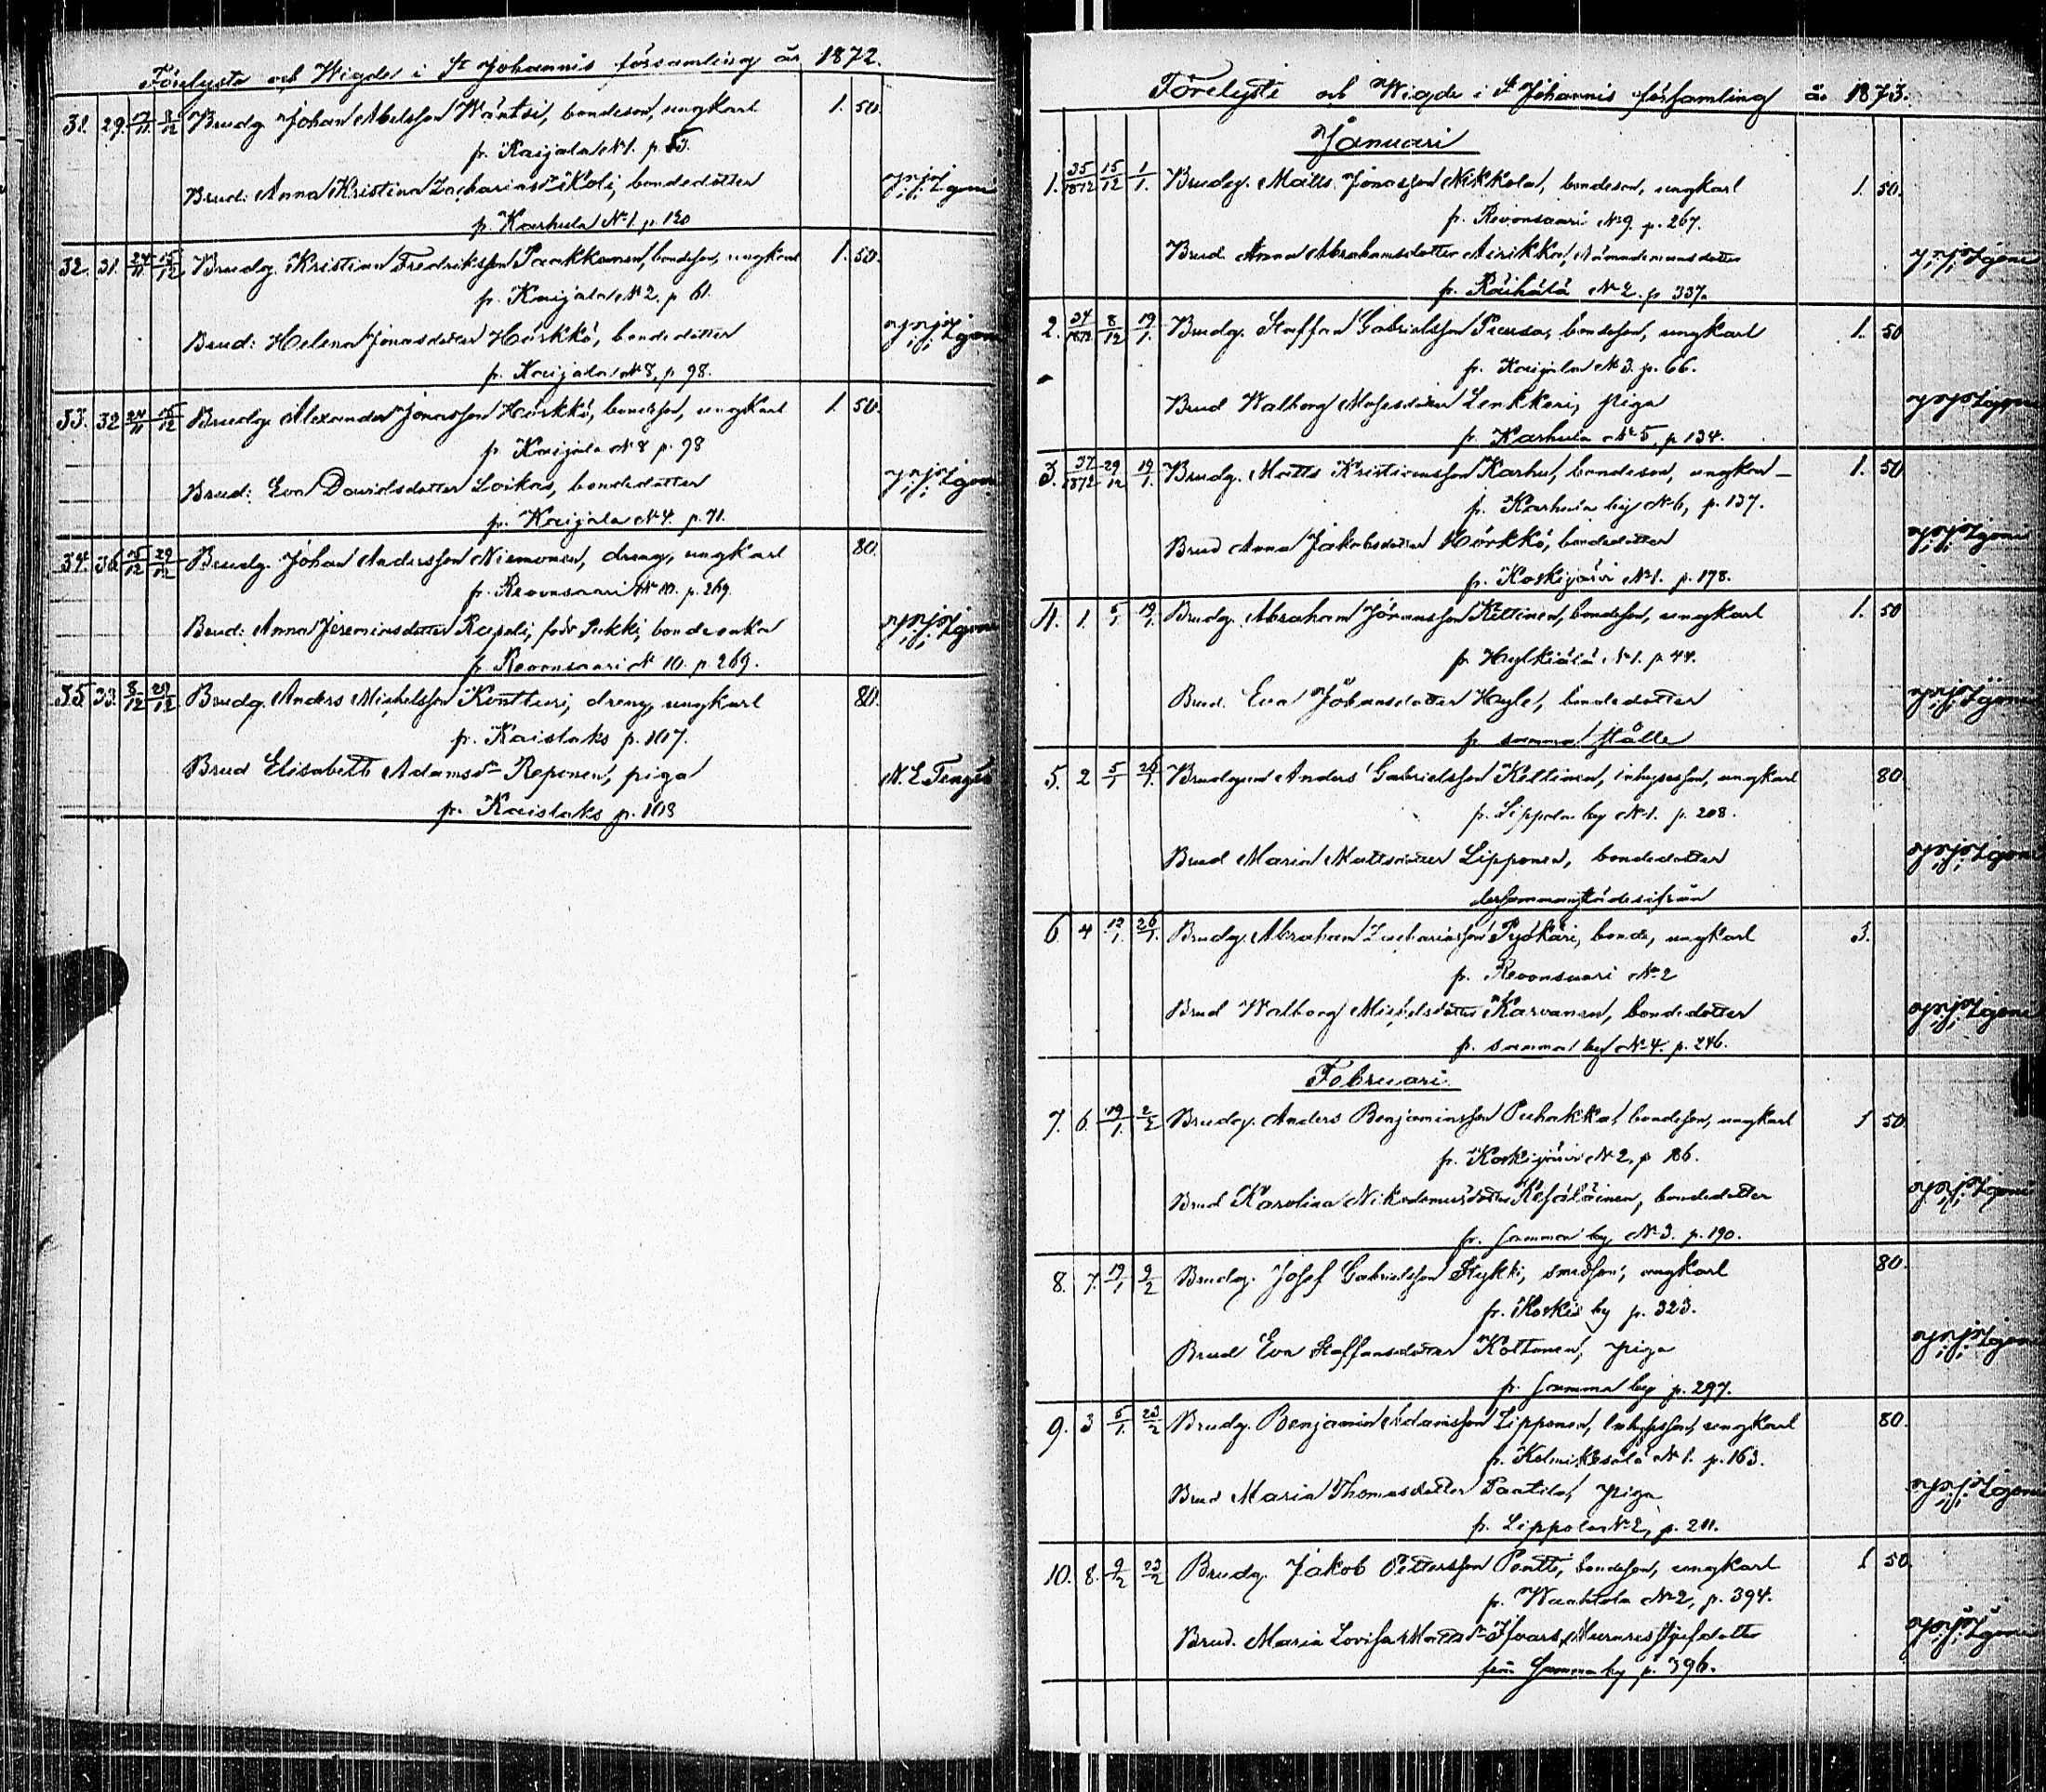 Förelyste och Wigde i St Johannis församling år 1872.
31. 29. 17/11 8/12 Brudg. Johan Abelsson Wäntsi, bondeson, ungkarl 1. 50.
fr. Kaijala N 1. p. 53.
Brud: Anna Kristina Zacharias dr Koli, bondedotter
fr. Karhula N 1. p. 120
32. 31. 24/11 15/12 Brudg. Kristian Fredriksson Paakkanen, bondeson, ungkarl 1. 50.
fr. Kaijala N 2, p 61.
Brud: Helena Jonasdotter Härkkö, bondedotter
fr. Kaijala N 8, p 98.
33. 32 24/11 15/12 Brudg. Alexander Jonasson Härkkö, bondeson, ungkarl 1. 50.
fr. Kaijala N 8 p. 98
Brud: Eva Davidsdotter Loikas, bondedotter
fr. Kaijala N 4. p. 71.
34. 36 15/12 29/12 Brudg. Johan Andersson Niemonen, dreng, ungkarl 80.
fr. Revonsaari N 10. p. 269.
Brud: Anna Jeremiasdotter Raepeli, född Pukki, bondeenka
fr. Revonsaari N 10. p. 269.
35. 33. 8/12 29/12 Brudg. Anders Michelsson Kontturi, dreng, ungkarl 80.
fr. Kaislaks p. 107.
Brud Elisabeth Adamsdr Reponen, piga N. L. Tengén
fr. Kaislaks p. 103
Förelyste och Wigde i St Johannis församling år 1873.
Januari
1. 35/1872 15/12 1/1. Brudg. Matts Jonasson Nikkola, bondeson, ungkarl 1. 50.
fr. Revonsaari N 9. p. 267.
Brud. Anna Abrahamsdotter Airikka, Nämndemansdotter
fr. Räihälä N 2. p 337.
2. 34/1872 8/12 19/1. Brudg. Staffan Gabrielsson Peusa, bondeson, ungkarl 1. 50
fr. Kaijala N 3. p. 66.
Brud Walborg Mosesdotter Lenkkeri, piga
fr. Karhula N 5, p 134.
3. 37/1872 29/12 19/1. Brudg. Matts Kristiansson Karhu, bondeson, ungkar- 1. 50
fr. Karhula by N 6, p. 137.
Brud Anna Jakobsdotter Härkkö, bondedotter
fr. Koskijärvi N 1. p. 178.
4. 1. 5/1 19/1. Brudg. Abraham Johansson Kettinen, bondeson, ungkarl 1. 50
fr. Hylkiälä N 1. p 44.
Brud. Eva Johansdotter Hyle, bondedotter
fr samma ställe
5. 2 5/1 26/1. Brudgum Anders Gabrielsson Kettinen, inhysesson, ungkarl 80.
fr. Lippola by N 1. p. 208.
Brud Maria Mattsdotter Lipponen, bondedotter
dersammastädesifrån
6 4 12/1. 26/1. Brudg. Abraham Zachariasson Pyökäri, bonde, ungkarl 3.
fr. Revonsaari N 2
Brud Walborg Michelsdotter Karvanen, bondedotter
fr. samma by N 4. p. 246.
Februari
7. 6. 19/1. 2/2 Brudg. Anders Benjaminsson Puhakka, bondeson, ungkarl 1 50.
fr. Koskijärvi N 2, p 186.
Brud Karolina Nikodemusdotter Kesäläinen, bondedotter
fr. samma by, N 3. p. 190.
8. 7. 19/1 9/2 Brudg. Josef Gabrielsson Flykki, smedson, ungkarl 80.
fr. Koskis by p. 323.
Brud Eva Staffansdotter Koltonen, piga
fr. samma by p. 297.
9. 3 5/1. 23/2 Brudg. Benjamin Adamsson Lipponen, inhysesson, ungkarl 80.
fr. Kolmikesälä N 1. p. 163.
Brud Maria Thomasdotter Pantila, piga
fr. Lippola N 2, p. 211.
10. 8. 9/2 23/2 Brudg. Jakob Pettersson Pentti, bondeson, ungkarl 1 50.
fr. Waahtola N 2, p. 394.
Brud. Maria Lovisa Matts dr Ihvars, Murares Styfdotter
från samma by p. 396.